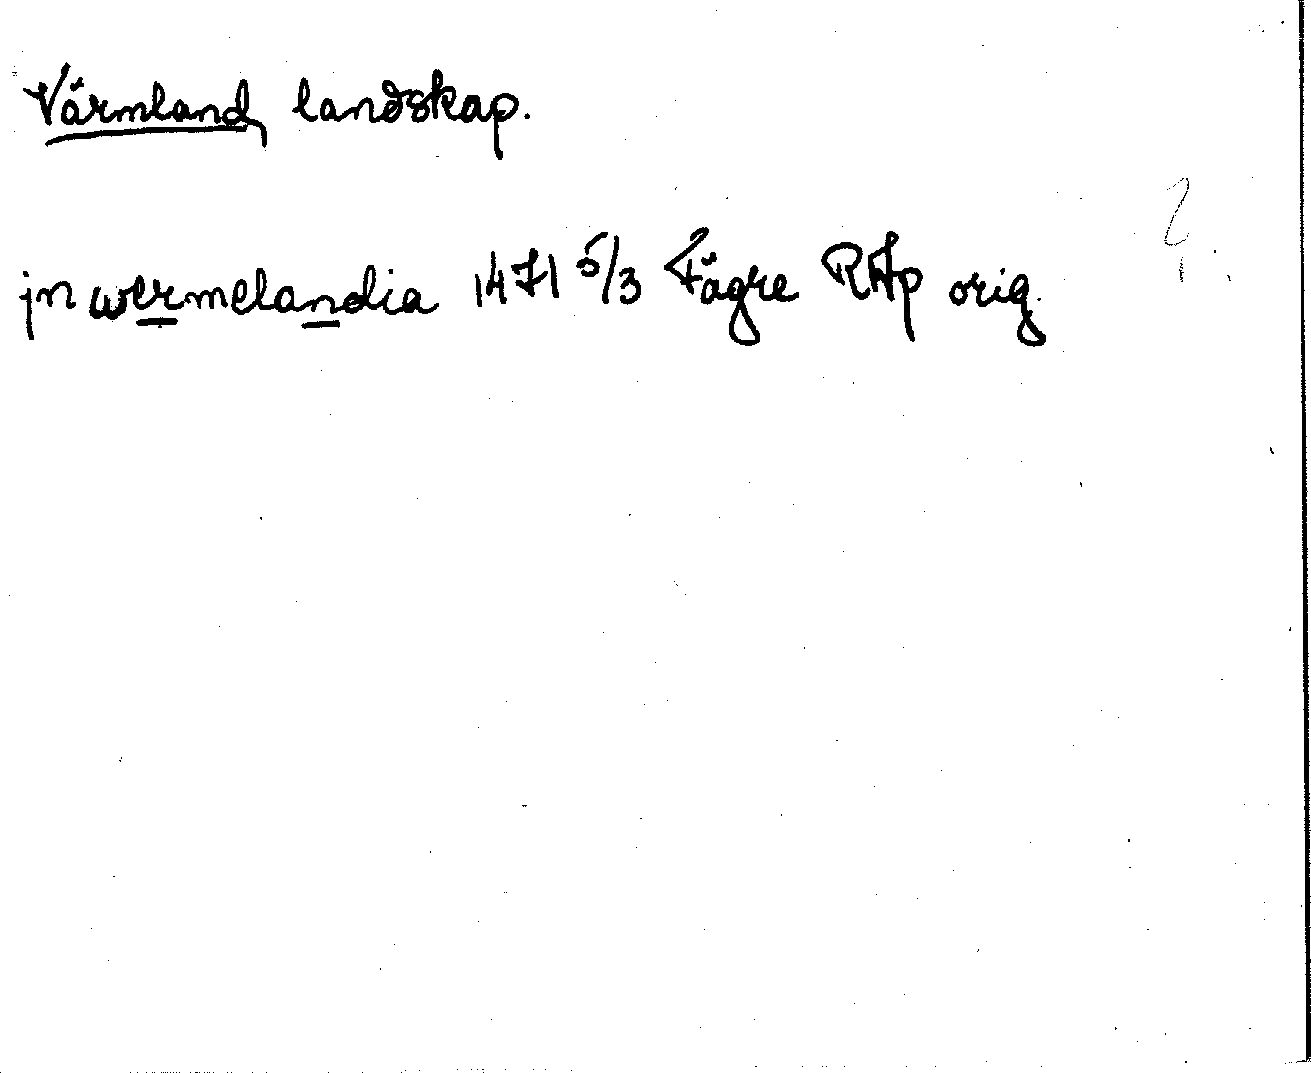 Värmland, landskap.
jn wermelandia 1471 5/3 Fägre RAp orig.